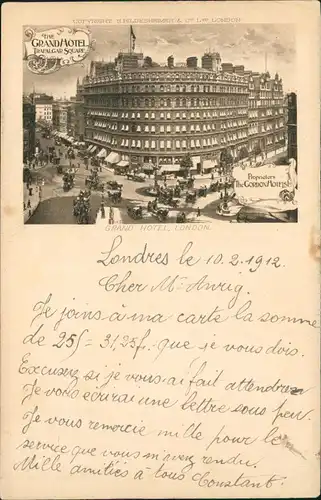 COPYRIGHT S.HILDESHEIMER & Co LTD LONDON.
THE
GRAND HOTEL
TRAFALGAR SQUARE
Proprietors
The GORDON HOTELS Ltd
GRAND HOTEL, LONDON.
Londres le 10.2.1912.
Cher Mr Anrig.
Je joins à ma carte la somme
de 25 f = 31,25 f. que je vous dois.
Excusez si je vous ai fait attendre
Je vous écrirai une lettre sous peu.
Je vous remercie mille pour le
service que vous m'avez rendu.
Mille amitiés à tous Constant.